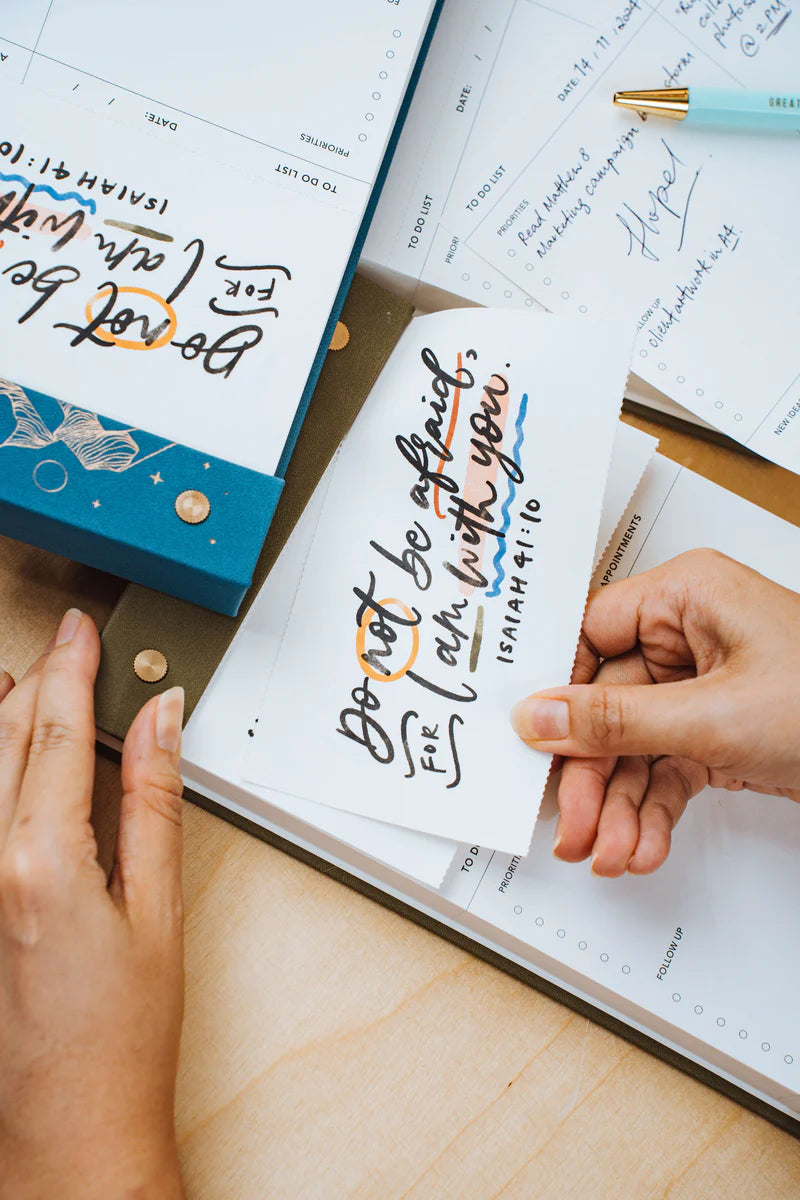 Do not be afraid,
FOR I am with you.
ISAIAH 41:10
TO DO LIST
PRIORITIES
DATE: / /
Do not be
FOR I am with
ISAIAH 41:10
DATE: / /
TO DO LIST
TO DO LIST
DATE: 14 / 11 / 2024
PRIORITIES
Read Matthew 8
Marketing campaign
Hope!
client artwork in A4.
NEW IDEAS
@ 2 PM
GREAT
APPOINTMENTS
FOLLOW UP